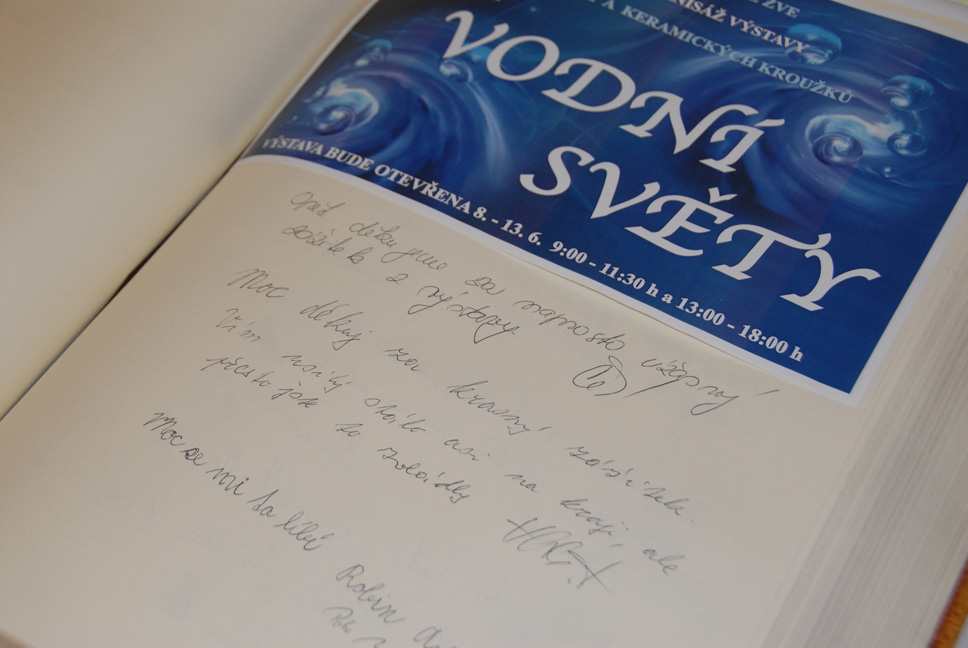 ZVE
VÝSTAVY
A KERAMICKÝCH KROUŽKŮ
VODNÍ
SVĚTY
VÝSTAVA BUDE OTEVŘENA 8. - 13. 6. 9:00 - 11:30 h a 13:00 - 18:00 h
děkujeme za naprosto úžasný
zážitek z výstavy
Moc děkuji za krásný zážitek.
Vím asi na kraji, ale
to zvládly
Moc se mi to líbí
Robin